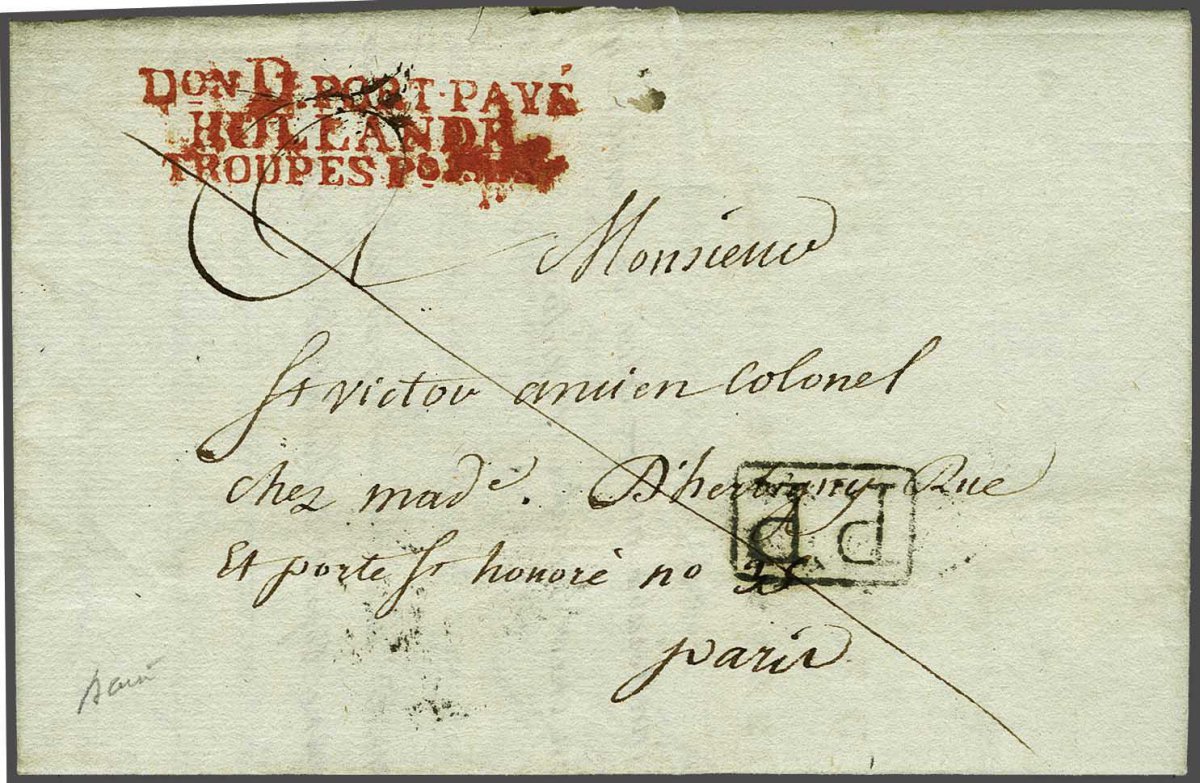 DON D. PORT·PAYÉ
HOLLANDE
TROUPES Po
Monsieur
St victor ancien Colonel
chez made. D'hertigny Rue
Et porte St honoré no
paris
PP